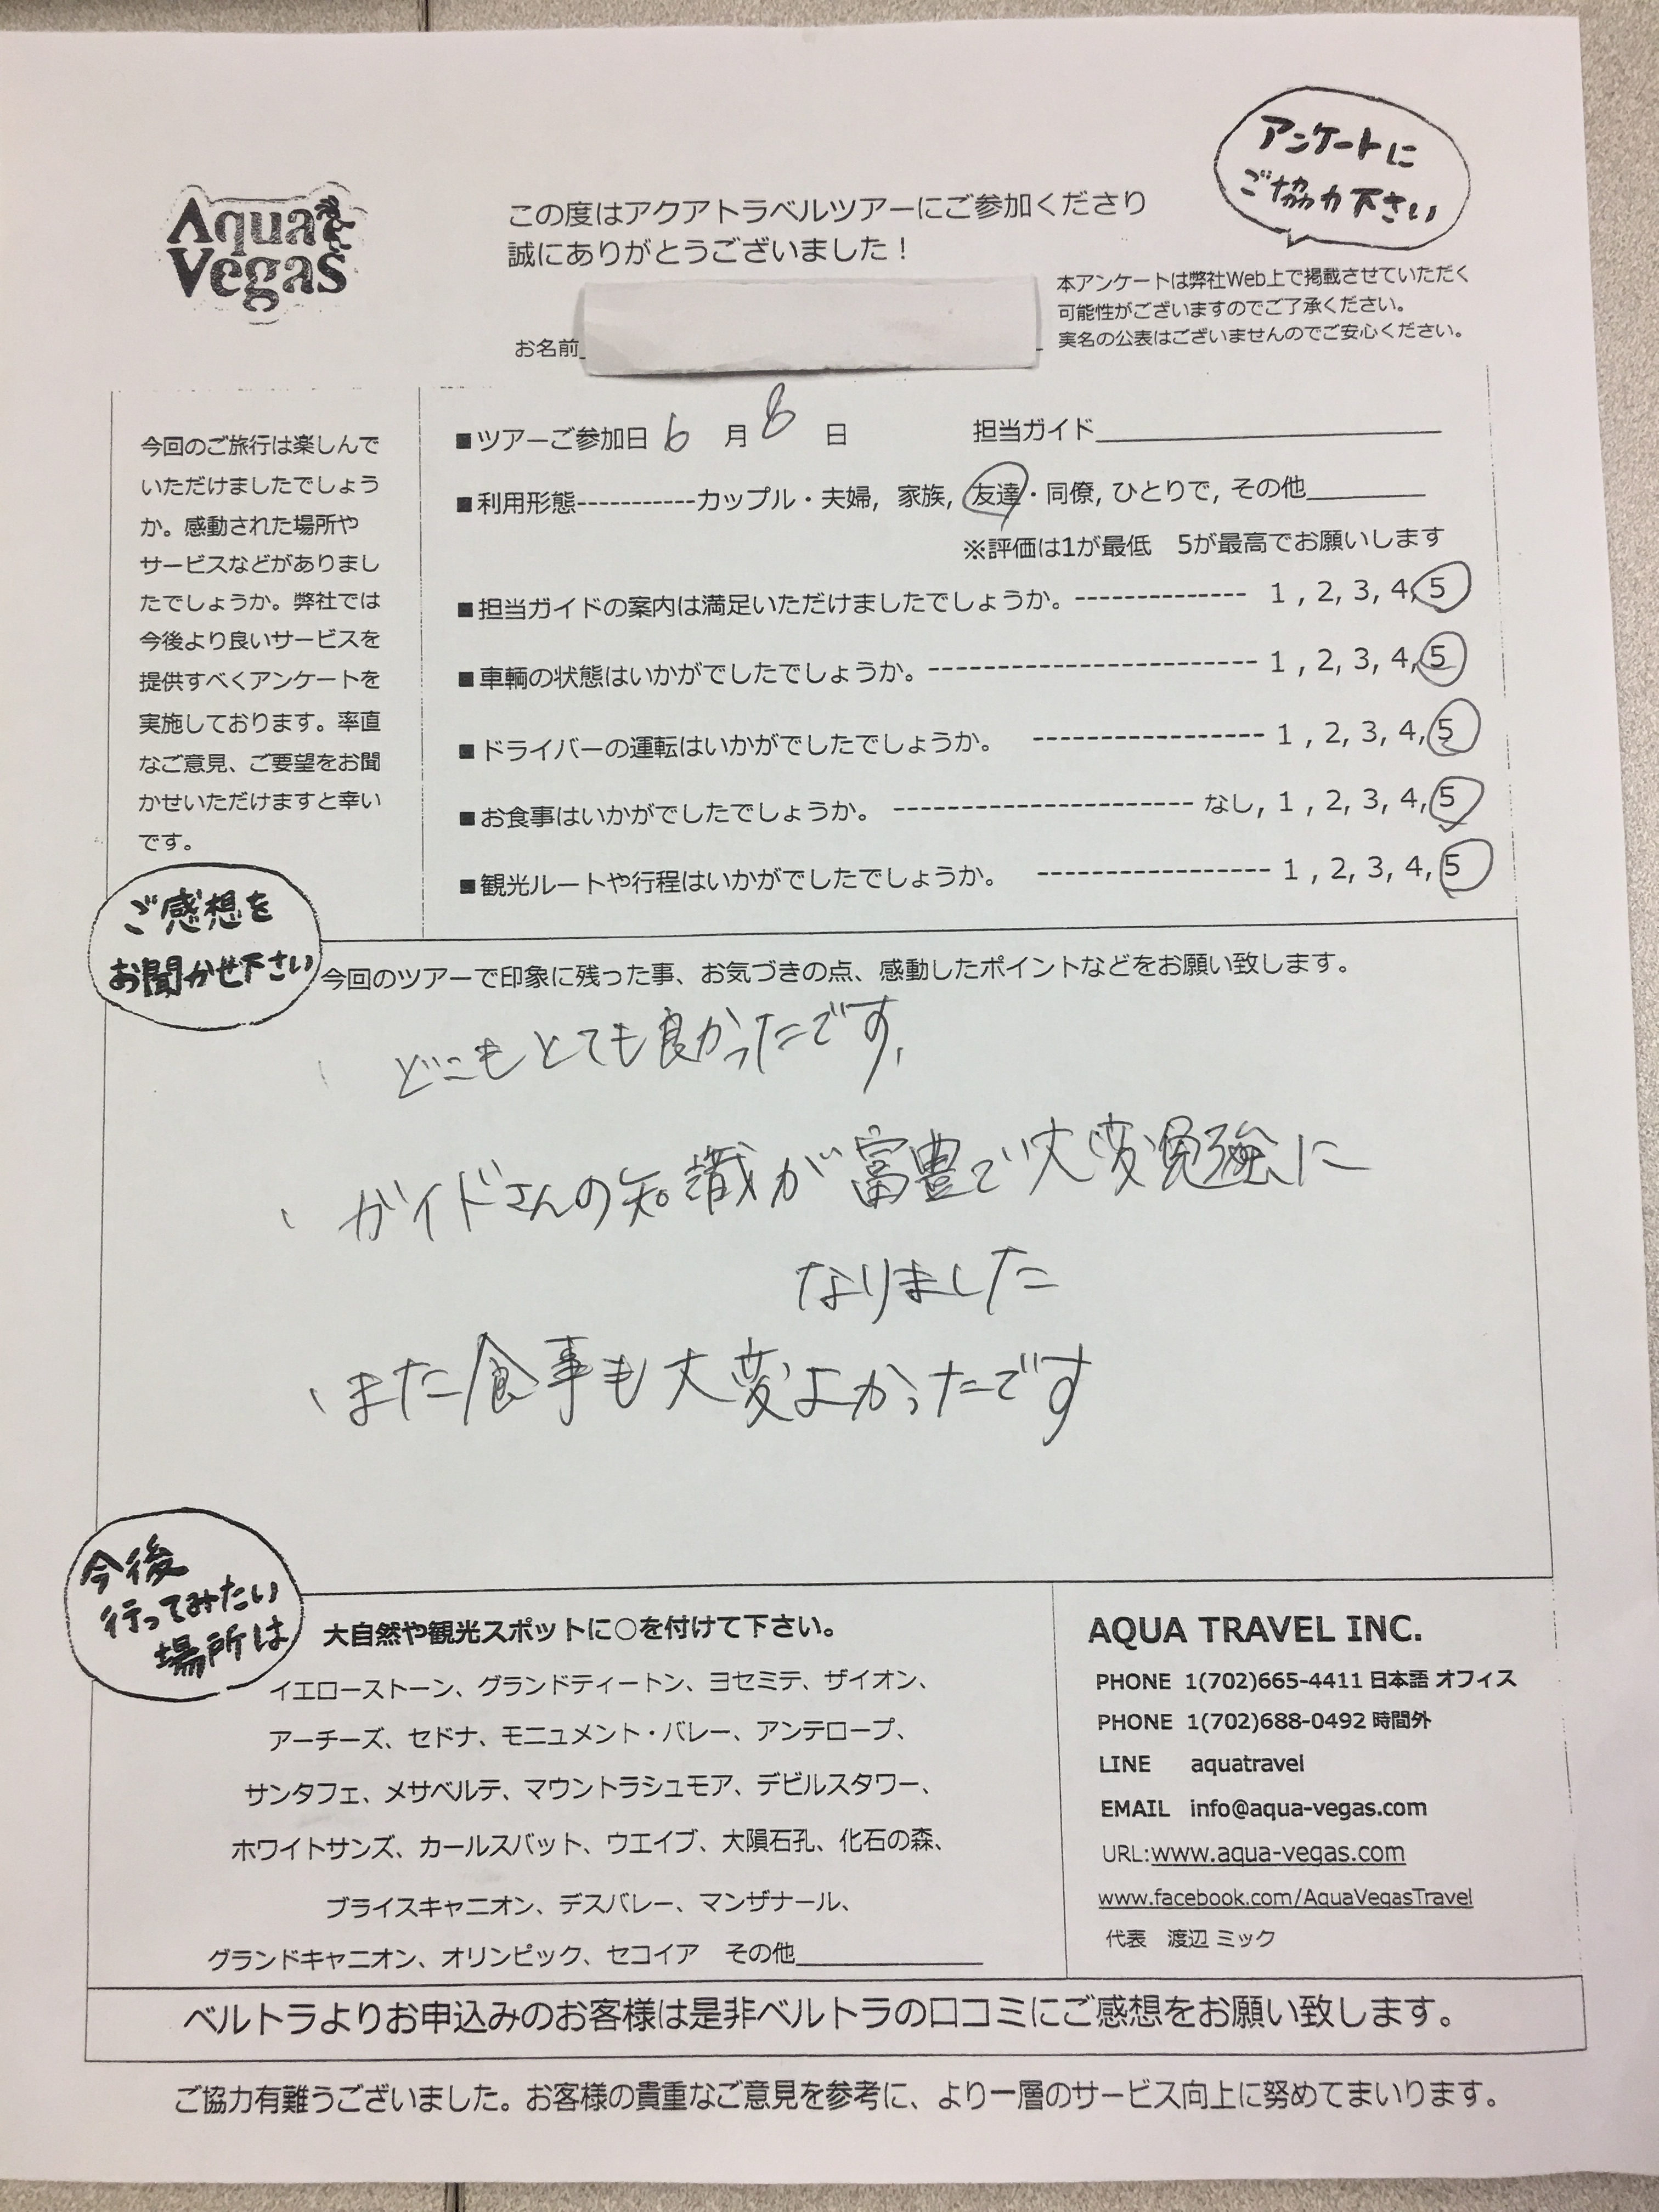 アンケートに
ご協力下さい
Aqua
Vegas
この度はアクアトラベルツアーにご参加くださり
誠にありがとうございました!
お名前
本アンケートは弊社Web上で掲載させていただく
可能性がございますのでご了承ください。
実名の公表はございませんのでご安心ください。
今回のご旅行は楽しんで
いただけましたでしょう
か。感動された場所や
サービスなどがありまし
たでしょうか。弊社では
今後より良いサービスを
提供すべくアンケートを
実施しております。率直
なご意見、ご要望をお聞
かせいただけますと幸い
です。
■ツアーご参加日 6 月 8 日 担当ガイド
■利用形態-----------カップル・夫婦, 家族, 友達・同僚, ひとりで, その他
※評価は1が最低 5が最高でお願いします
■担当ガイドの案内は満足いただけましたでしょうか。-------------- 1 , 2, 3, 4, 5
■車輌の状態はいかがでしたでしょうか。------------------------ 1 , 2, 3, 4, 5
■ドライバーの運転はいかがでしたでしょうか。 ----------------- 1 , 2, 3, 4, 5
■お食事はいかがでしたでしょうか。 ---------------------- なし, 1 , 2, 3, 4, 5
■観光ルートや行程はいかがでしたでしょうか。 ----------------- 1 , 2, 3, 4, 5
ご感想を
お聞かせ下さい
今回のツアーで印象に残った事、お気づきの点、感動したポイントなどをお願い致します。
どこもとても良かったです、
、ガイドさんの知識が富豊で大変勉強に
なりました
、また食事も大変よかったです
今後
行ってみたい
場所は
大自然や観光スポットに○を付けて下さい。
イエローストーン、グランドティートン、ヨセミテ、ザイオン、
アーチーズ、セドナ、モニュメント・バレー、アンテロープ、
サンタフェ、メサベルテ、マウントラシュモア、デビルスタワー、
ホワイトサンズ、カールスバット、ウエイブ、大隕石孔、化石の森、
ブライスキャニオン、デスバレー、マンザナール、
グランドキャニオン、オリンピック、セコイア その他
AQUA TRAVEL INC.
PHONE 1(702)665-4411 日本語 オフィス
PHONE 1(702)688-0492 時間外
LINE aquatravel
EMAIL info@aqua-vegas.com
URL:www.aqua-vegas.com
www.facebook.com/AquaVegasTravel
代表 渡辺 ミック
ベルトラよりお申込みのお客様は是非ベルトラの口コミにご感想をお願い致します。
ご協力有難うございました。お客様の貴重なご意見を参考に、より一層のサービス向上に努めてまいります。